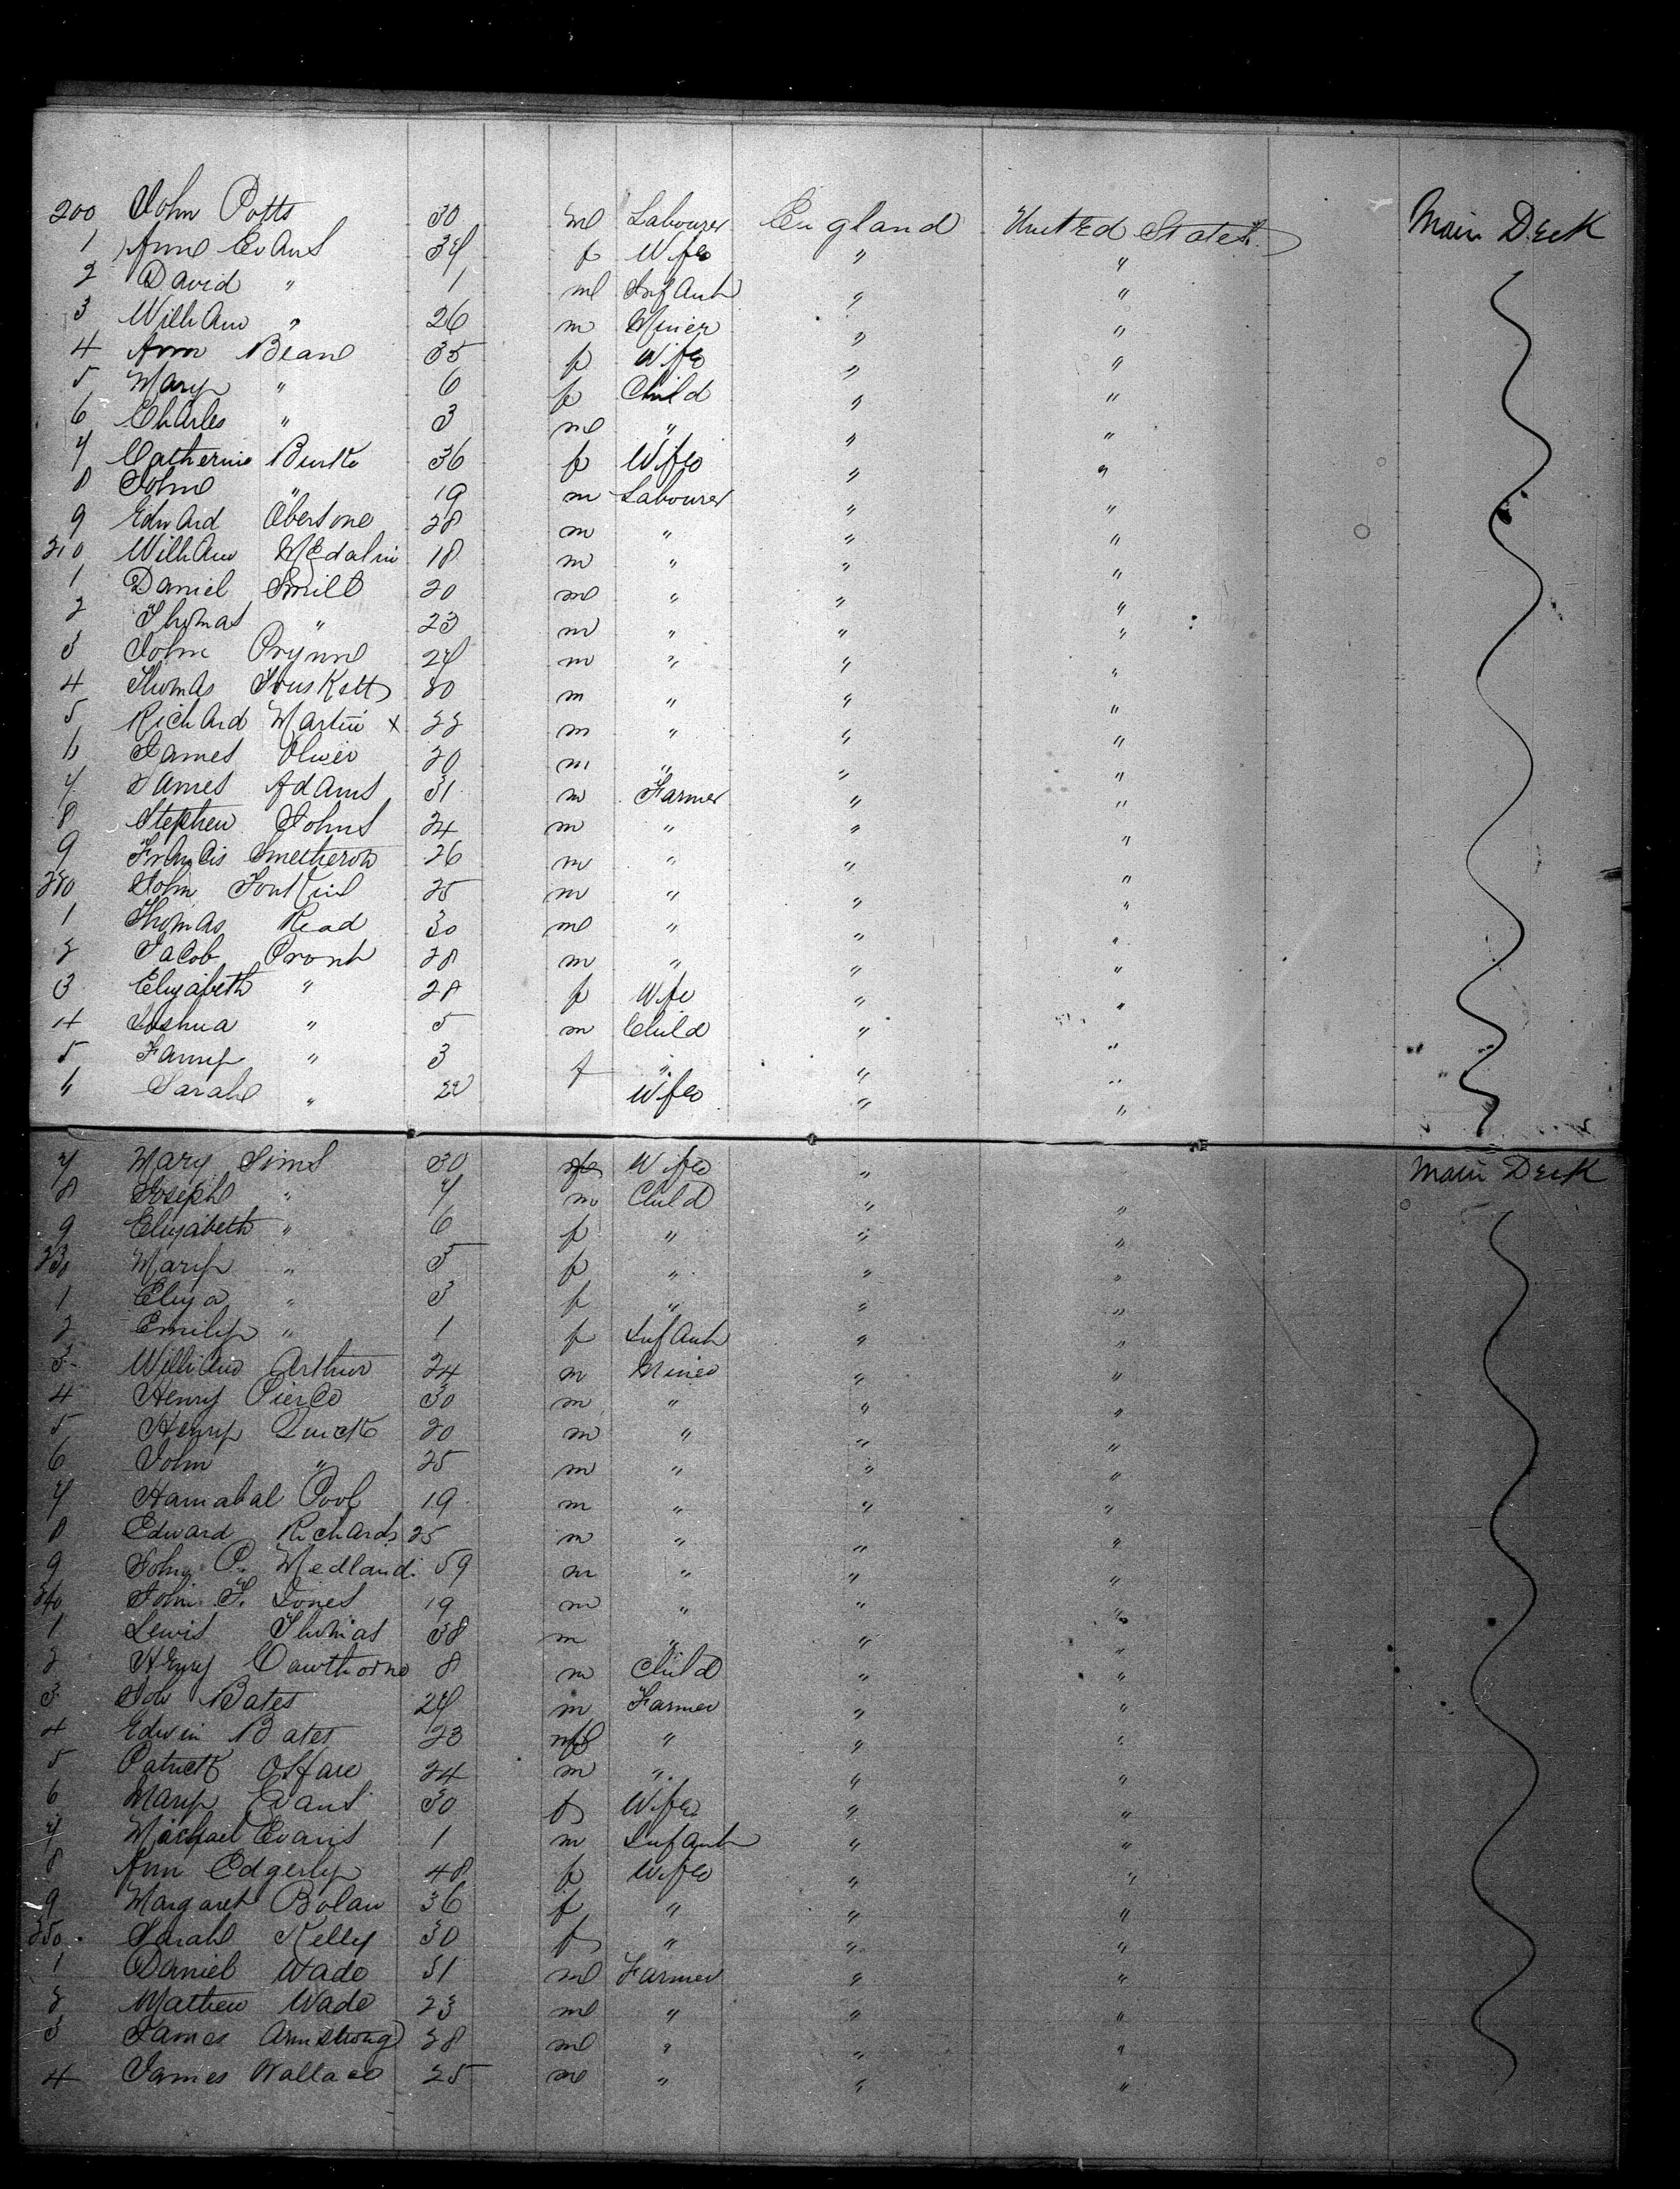 200 John Potts 30 m Labourer England United States Main Deck
1 Anne Evans 34 f Wife " "
2 David " 1 m Infant " "
3 William " 26 m Miner " "
4 Ann Beane 35 f Wife " "
5 Mary " 6 f Child " "
6 Charles " 3 m " " "
7 Catherine Burke 36 f Wife " "
8 John " 19 m Labourer " "
9 Edward 28 m " " "
210 William 18 m " " "
1 Daniel Smith 20 m " " "
2 Thomas " 23 m " " "
3 John Prynne 27 m " " "
4 Thomas 30 m " " "
5 Richard Martin x 22 m " " "
6 James Oliver 20 m " " "
7 James Adams 31 m Farmer " "
8 Stephen Johns 24 m " " "
9 Francis 26 m " " "
220 John 25 m " " "
1 Thomas Read 30 m " " "
2 Jacob 28 m " " "
3 Elizabeth " 28 f Wife " "
4 Joshua " 5 m Child " "
5 Fanny " 3 f " " "
6 Sarah " 22 Wife " "
7 Mary Sims 30 Wife " Main Deck
8 Joseph " 7 m Child " "
9 Elizabeth " 6 f " " "
230 Mary " 5 f " " "
1 Eliza " 3 f " " "
2 Emily " 1 f Infant " "
3 William Arthur 24 m Miner " "
4 Henry Pierce 30 m " " "
5 Henry Quick 20 m " " "
6 John " 25 m " " "
7 Hamabal Pool 19 m " " "
8 Edward Richards 25 m " " "
9 John P. Medland 59 m " " "
240 John T. Jones 19 m " " "
1 Lewis Thomas 38 m " " "
2 Henry Cawthorne 8 m Child " "
3 Job Bates 27 m Farmer " "
4 Edwin Bates 23 m " " "
5 Patrick OHare 24 m " " "
6 Mary Evans 30 f Wife " "
7 Michael Evans 1 m Infant " "
8 Ann Edgerly 48 f Wife " "
9 Margaret Bolan 36 f " " "
250 Sarah Kelly 30 f " " "
1 Daniel Wade 51 m Farmer " "
2 Mathew Wade 23 m " " "
3 James Armstrong 28 m " " "
4 James Wallace 25 m " " "